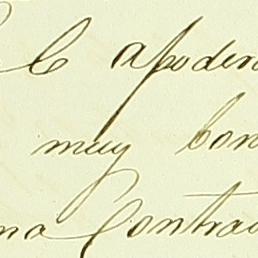 C apoder
muy bon
na Contra